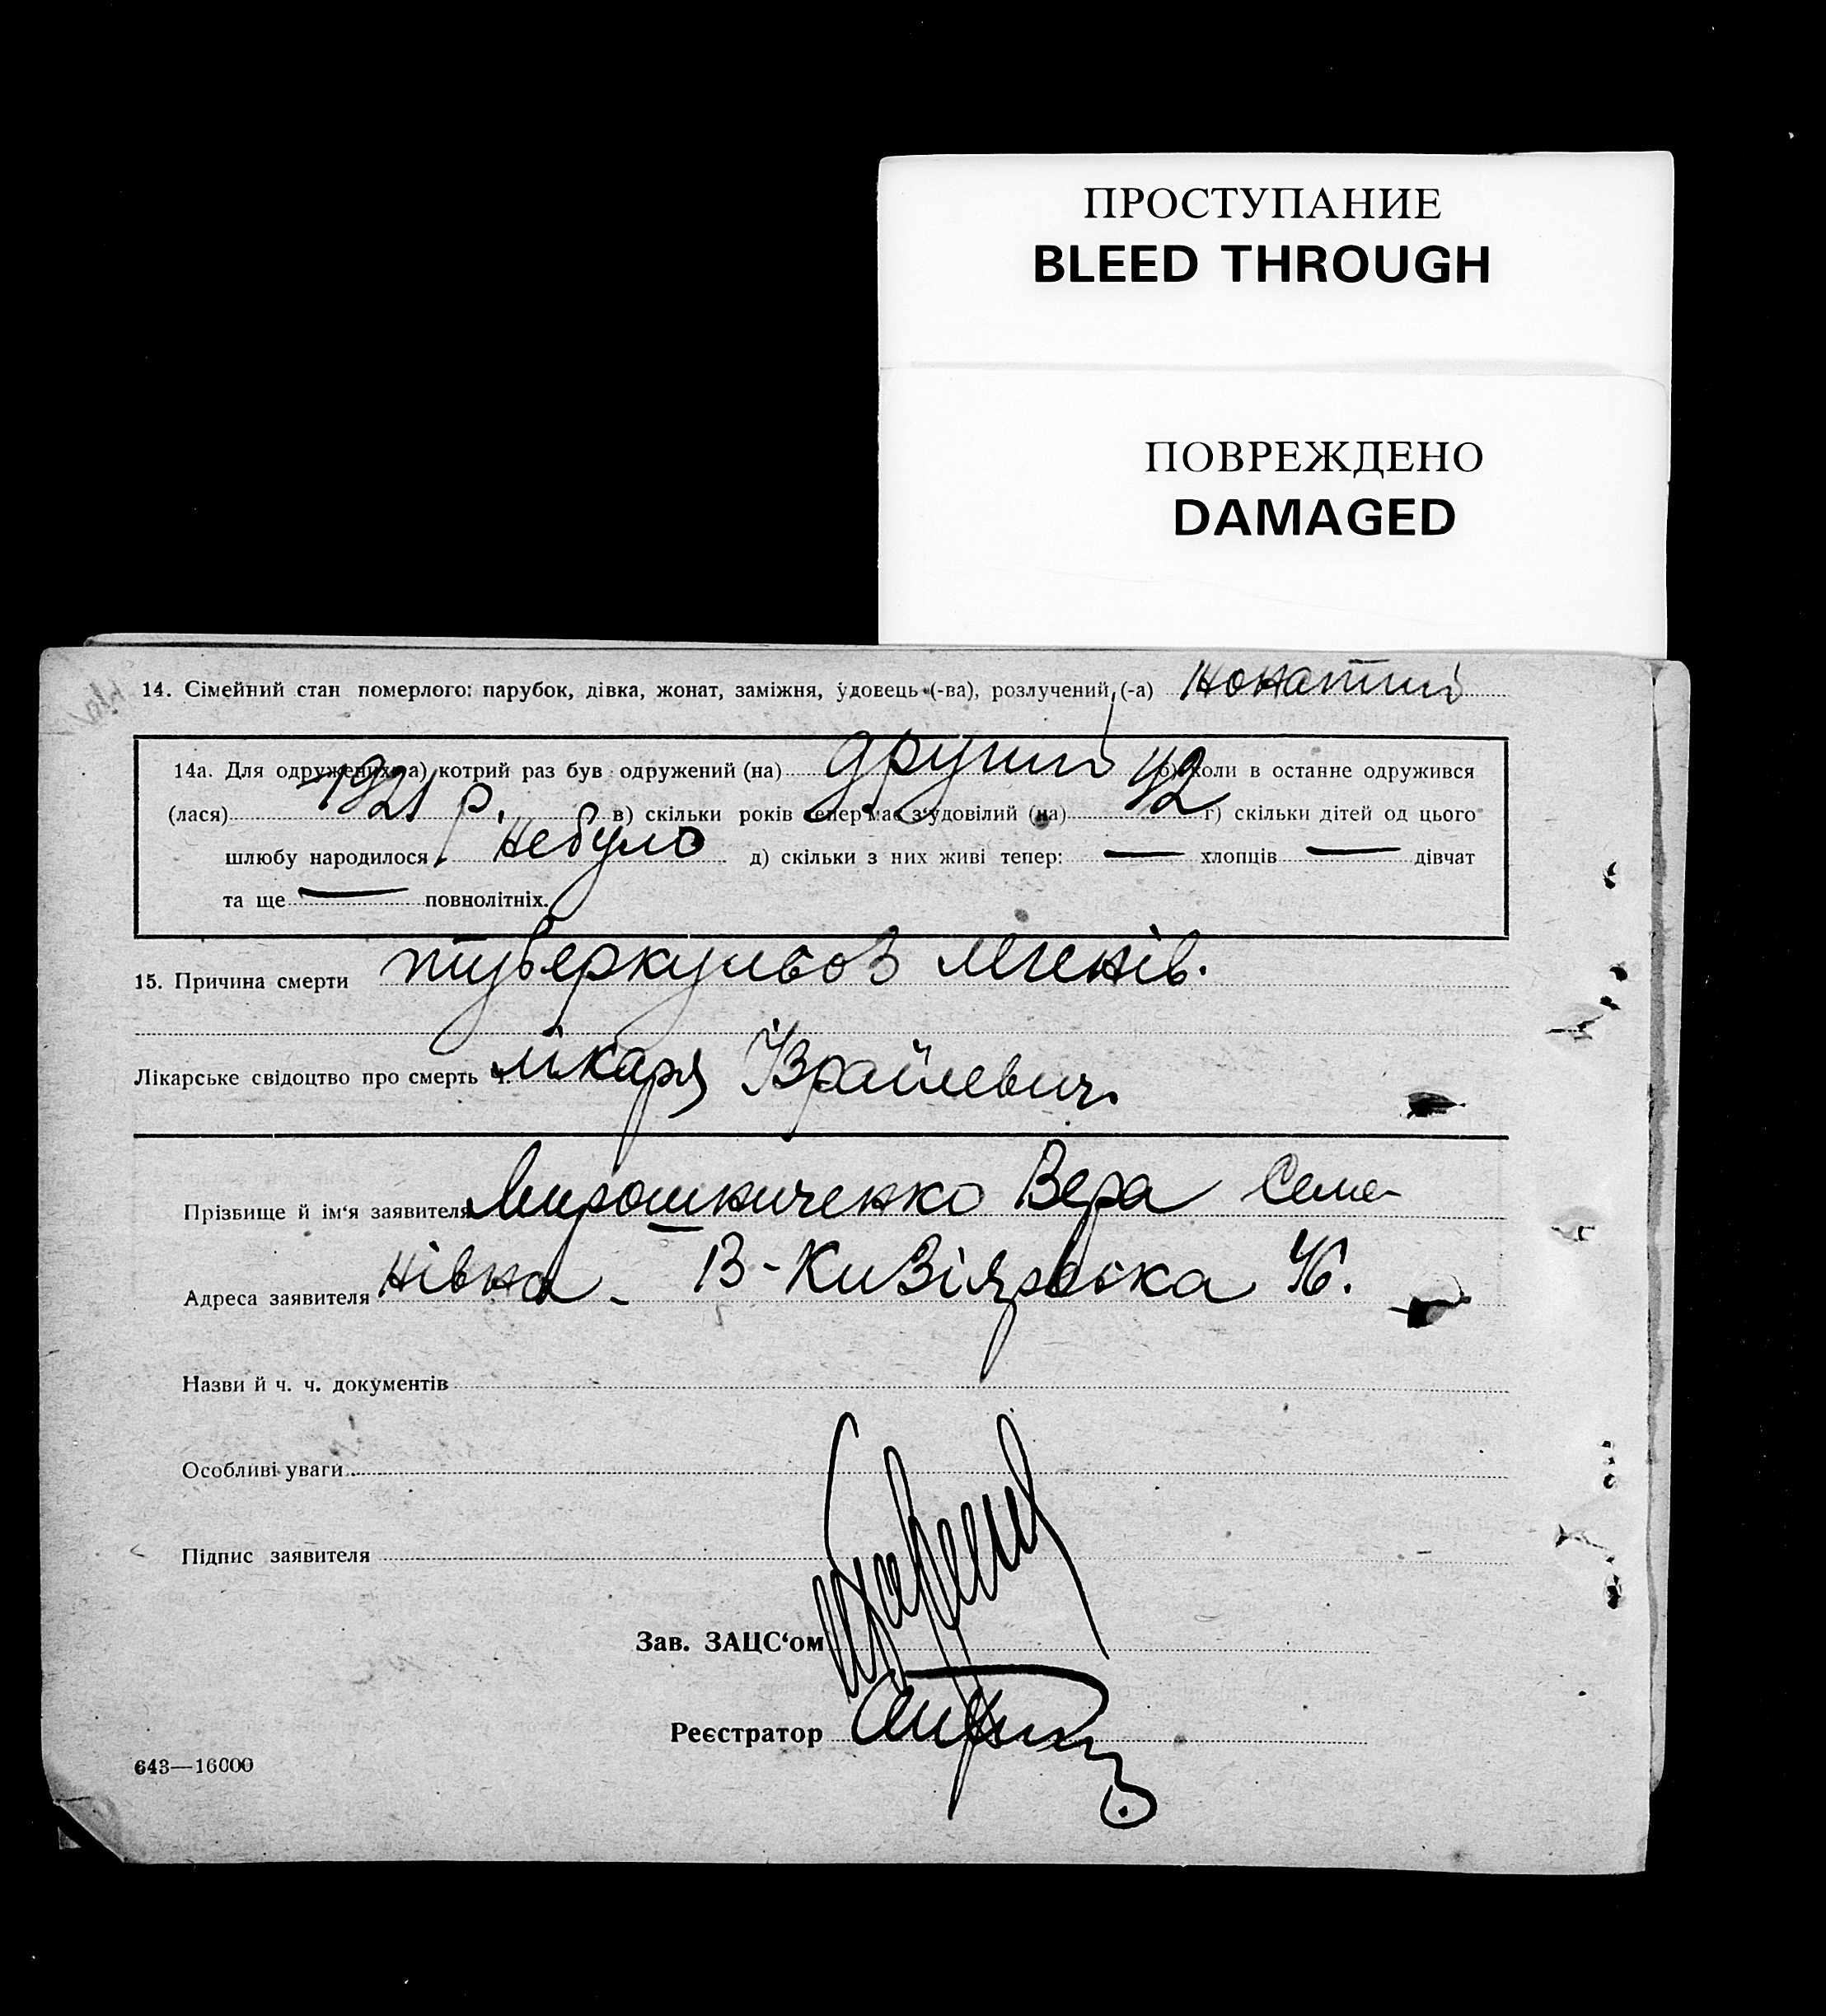 ПРОСТУПАНИЕ
BLEED THROUGH
ПОВРЕЖДЕНО
DAMAGED
14. Сімейний стан померлого: парубок, дівка, жонат, заміжня, удовець (-ва), розлучений (-а) жонатий
14а. Для одружених: а) котрий раз був одружений (на) другий б) коли в останне одружився
(лася) 1921 р. в) скільки років тепер має з'удовілий (на) 42 г) скільки дітей од цього
шлюбу народилося небуло д) скільки з них живі тепер: — хлопців — дівчат
та ще — повнолітніх.
15. Причина смерти туберкульоз легенів.
Лікарське свідоцтво про смерть ч. лікаря Ізраїлевич.
Прізвище й ім'я заявителя Мирошниченко Вера Семе-
Адреса заявителя нівна - В-Кизіярська 46.
Назви й ч. ч. документів
Особливі уваги
Підпис заявителя
Зав. ЗАЦС'ом
Реєстратор
643—16000